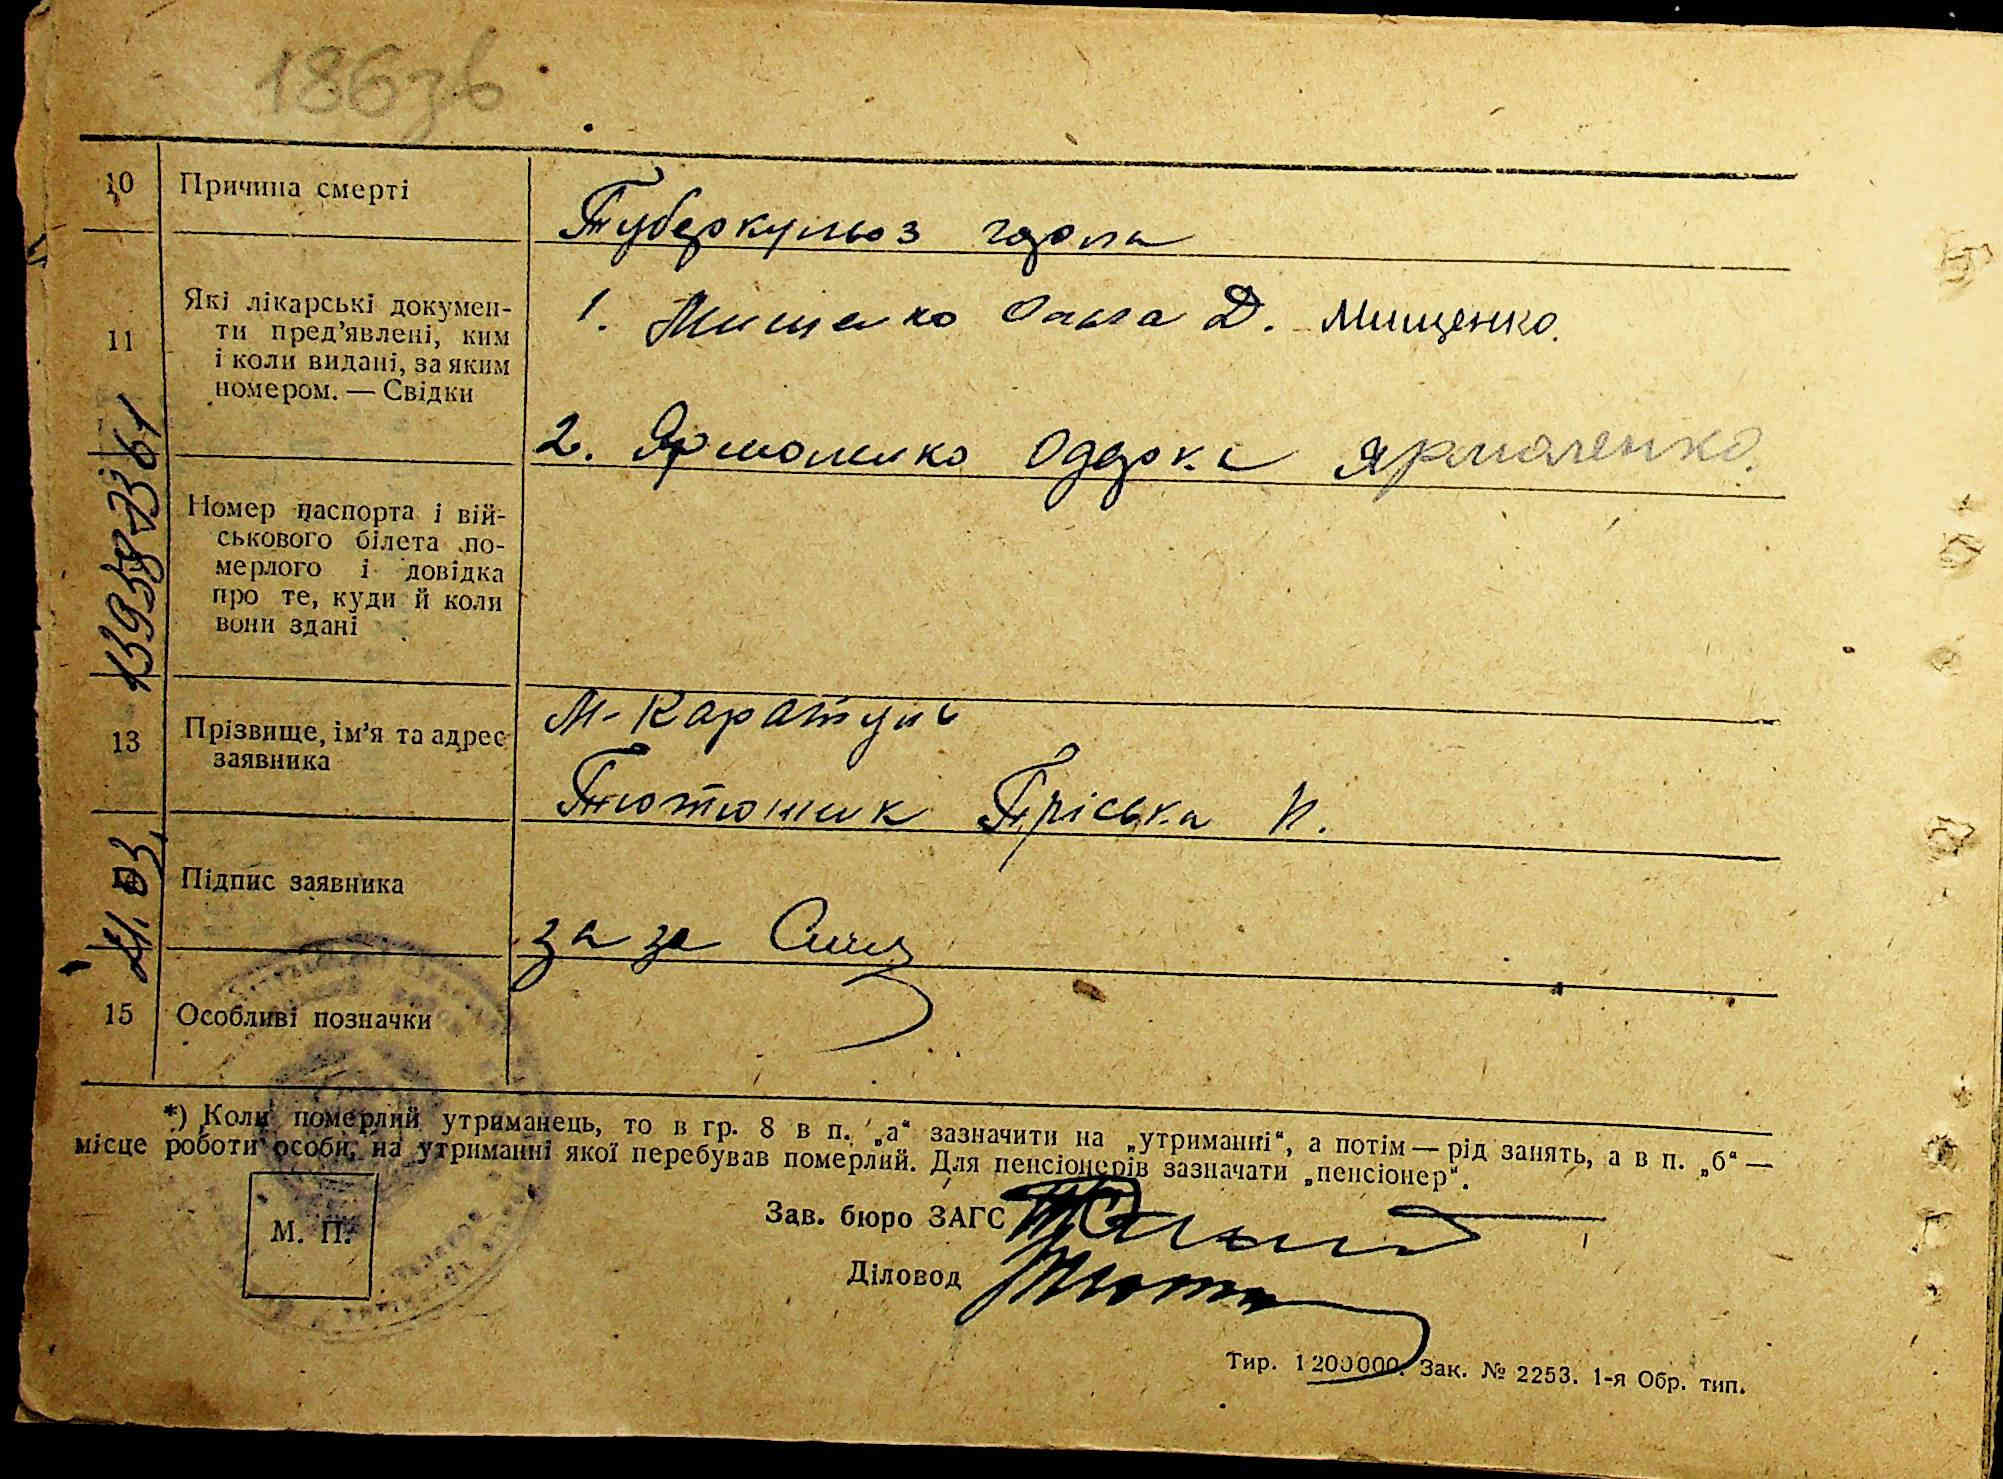 186зв
10 Причина смерті
Туберкульоз горла
11 Які лікарські докумен-
ти пред’явлені, ким
і коли видані, за яким
номером. — Свідки
1. Мищенко Ольга Д. Мищенко.
2. Ярмоленко Одарка Ярмоленко.
Номер паспорта і вій-
ськового білета по-
мерлого і довідка
про те, куди й коли
вони здані
13 Прізвище, ім’я та адрес
заявника
М-Каратуль
Тютюник Пріська И.
Підпис заявника
за
15 Особливі позначки
*) Коли померлий утриманець, то в гр. 8 в п. „а“ зазначити на „утриманні“, а потім — рід занять, а в п. „б“ —
місце роботи особи, на утриманні якої перебував померлий. Для пенсіонерів зазначати „пенсіонер“.
М. П.
Зав. бюро ЗАГС
Діловод
Тир. 1 200000. Зак. № 2253. 1-я Обр. тип.